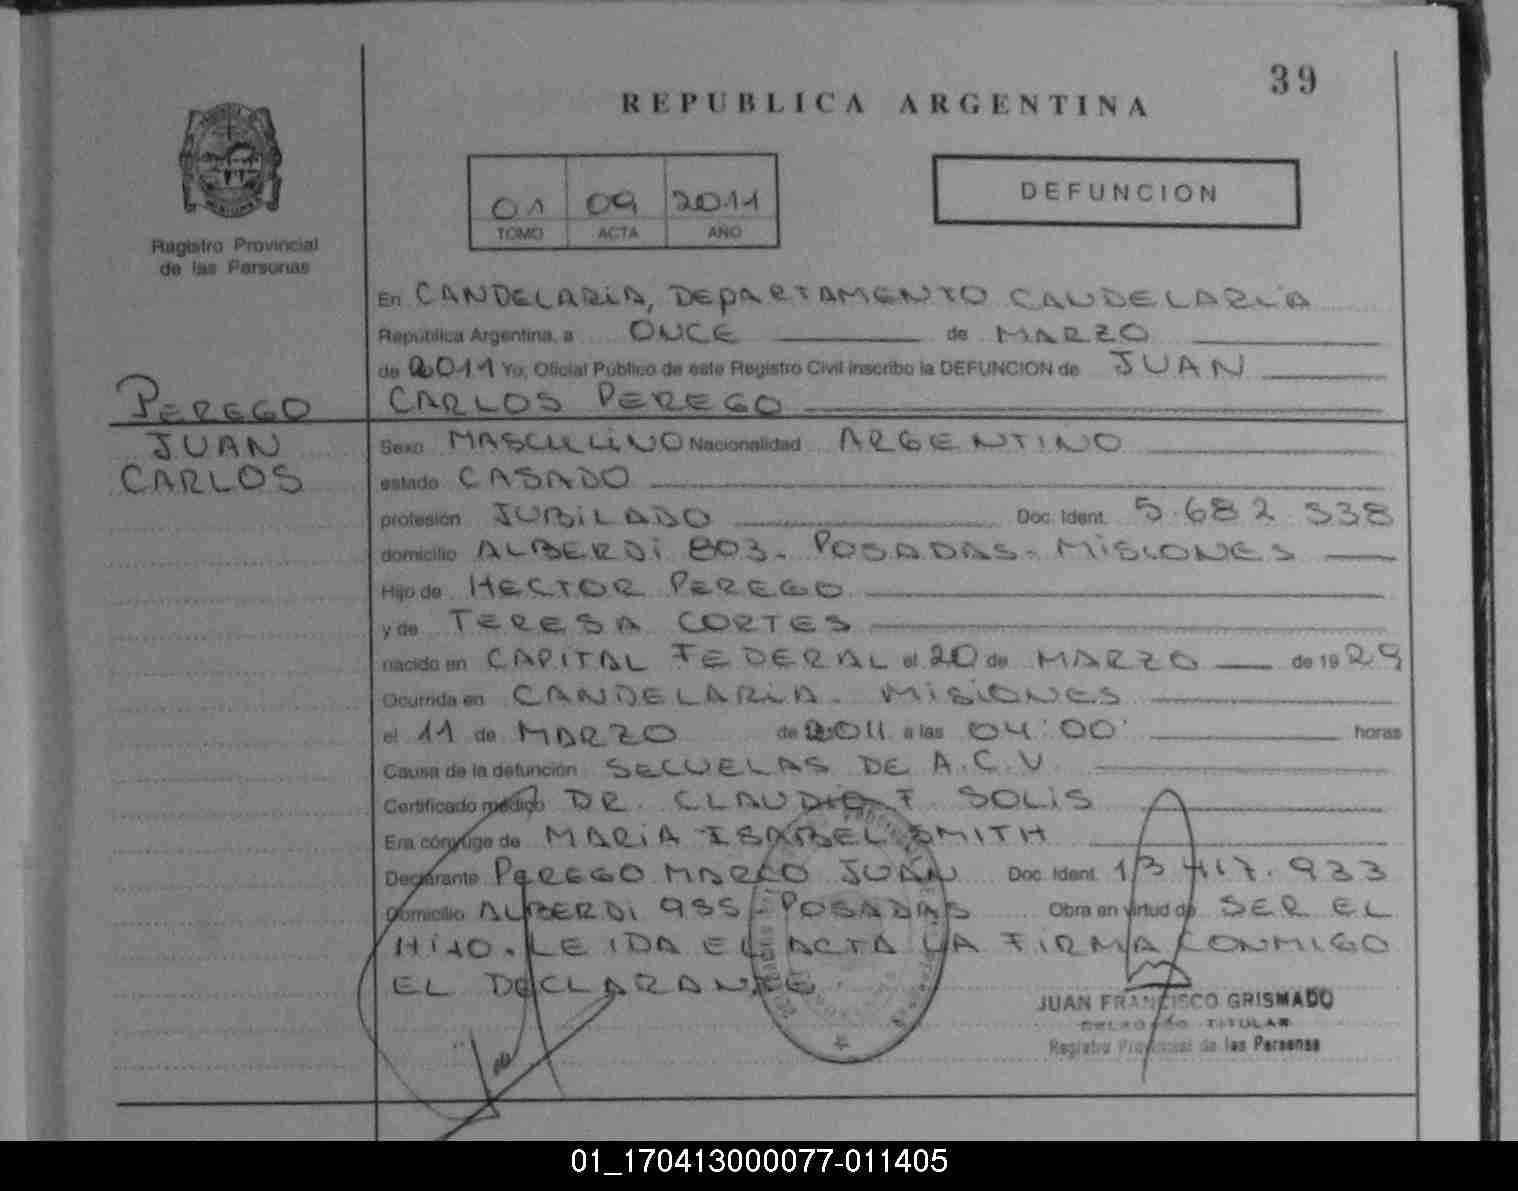 39
REPUBLICA ARGENTINA
01 09 2011
TOMO ACTA AÑO
DEFUNCION
Registro Provincial
de las Personas
En CANDELARIA, DEPARTAMENTO CANDELARIA
República Argentina, a ONCE de MARZO
de 2011 Yo, Oficial Público de este Registro Civil inscribo la DEFUNCION de JUAN
CARLOS PEREGO
PEREGO
JUAN
CARLOS
Sexo MASCULINO Nacionalidad ARGENTINO
estado CASADO
profesión JUBILADO Doc. Ident. 5.682 538
domicilio ALBERDI 803 - POSADAS - MISIONES
Hijo de HECTOR PEREGO
y de TERESA CORTES
nacido en CAPITAL FEDERAL el 20 de MARZO de 1929
Ocurrida en CANDELARIA - MISIONES
el 11 de MARZO de 2011 a las 04:00 horas
Causa de la defunción SECUELAS DE A.C.V
Certificado médico DR. CLAUDIO F. SOLIS
Era cónyuge de MARIA ISABEL SMITH
Declarante PEREGO MARCO JUAN Doc. Ident. 13 417.933
Domicilio ALBERDI 935 - POSADAS Obra en virtud de SER EL
HIJO. LEIDA EL ACTA LA FIRMA CONMIGO
EL DECLARANTE.
JUAN FRANCISCO GRISMADO
DELEGADO TITULAR
Registro Provincial de las Personas
01_170413000077-011405